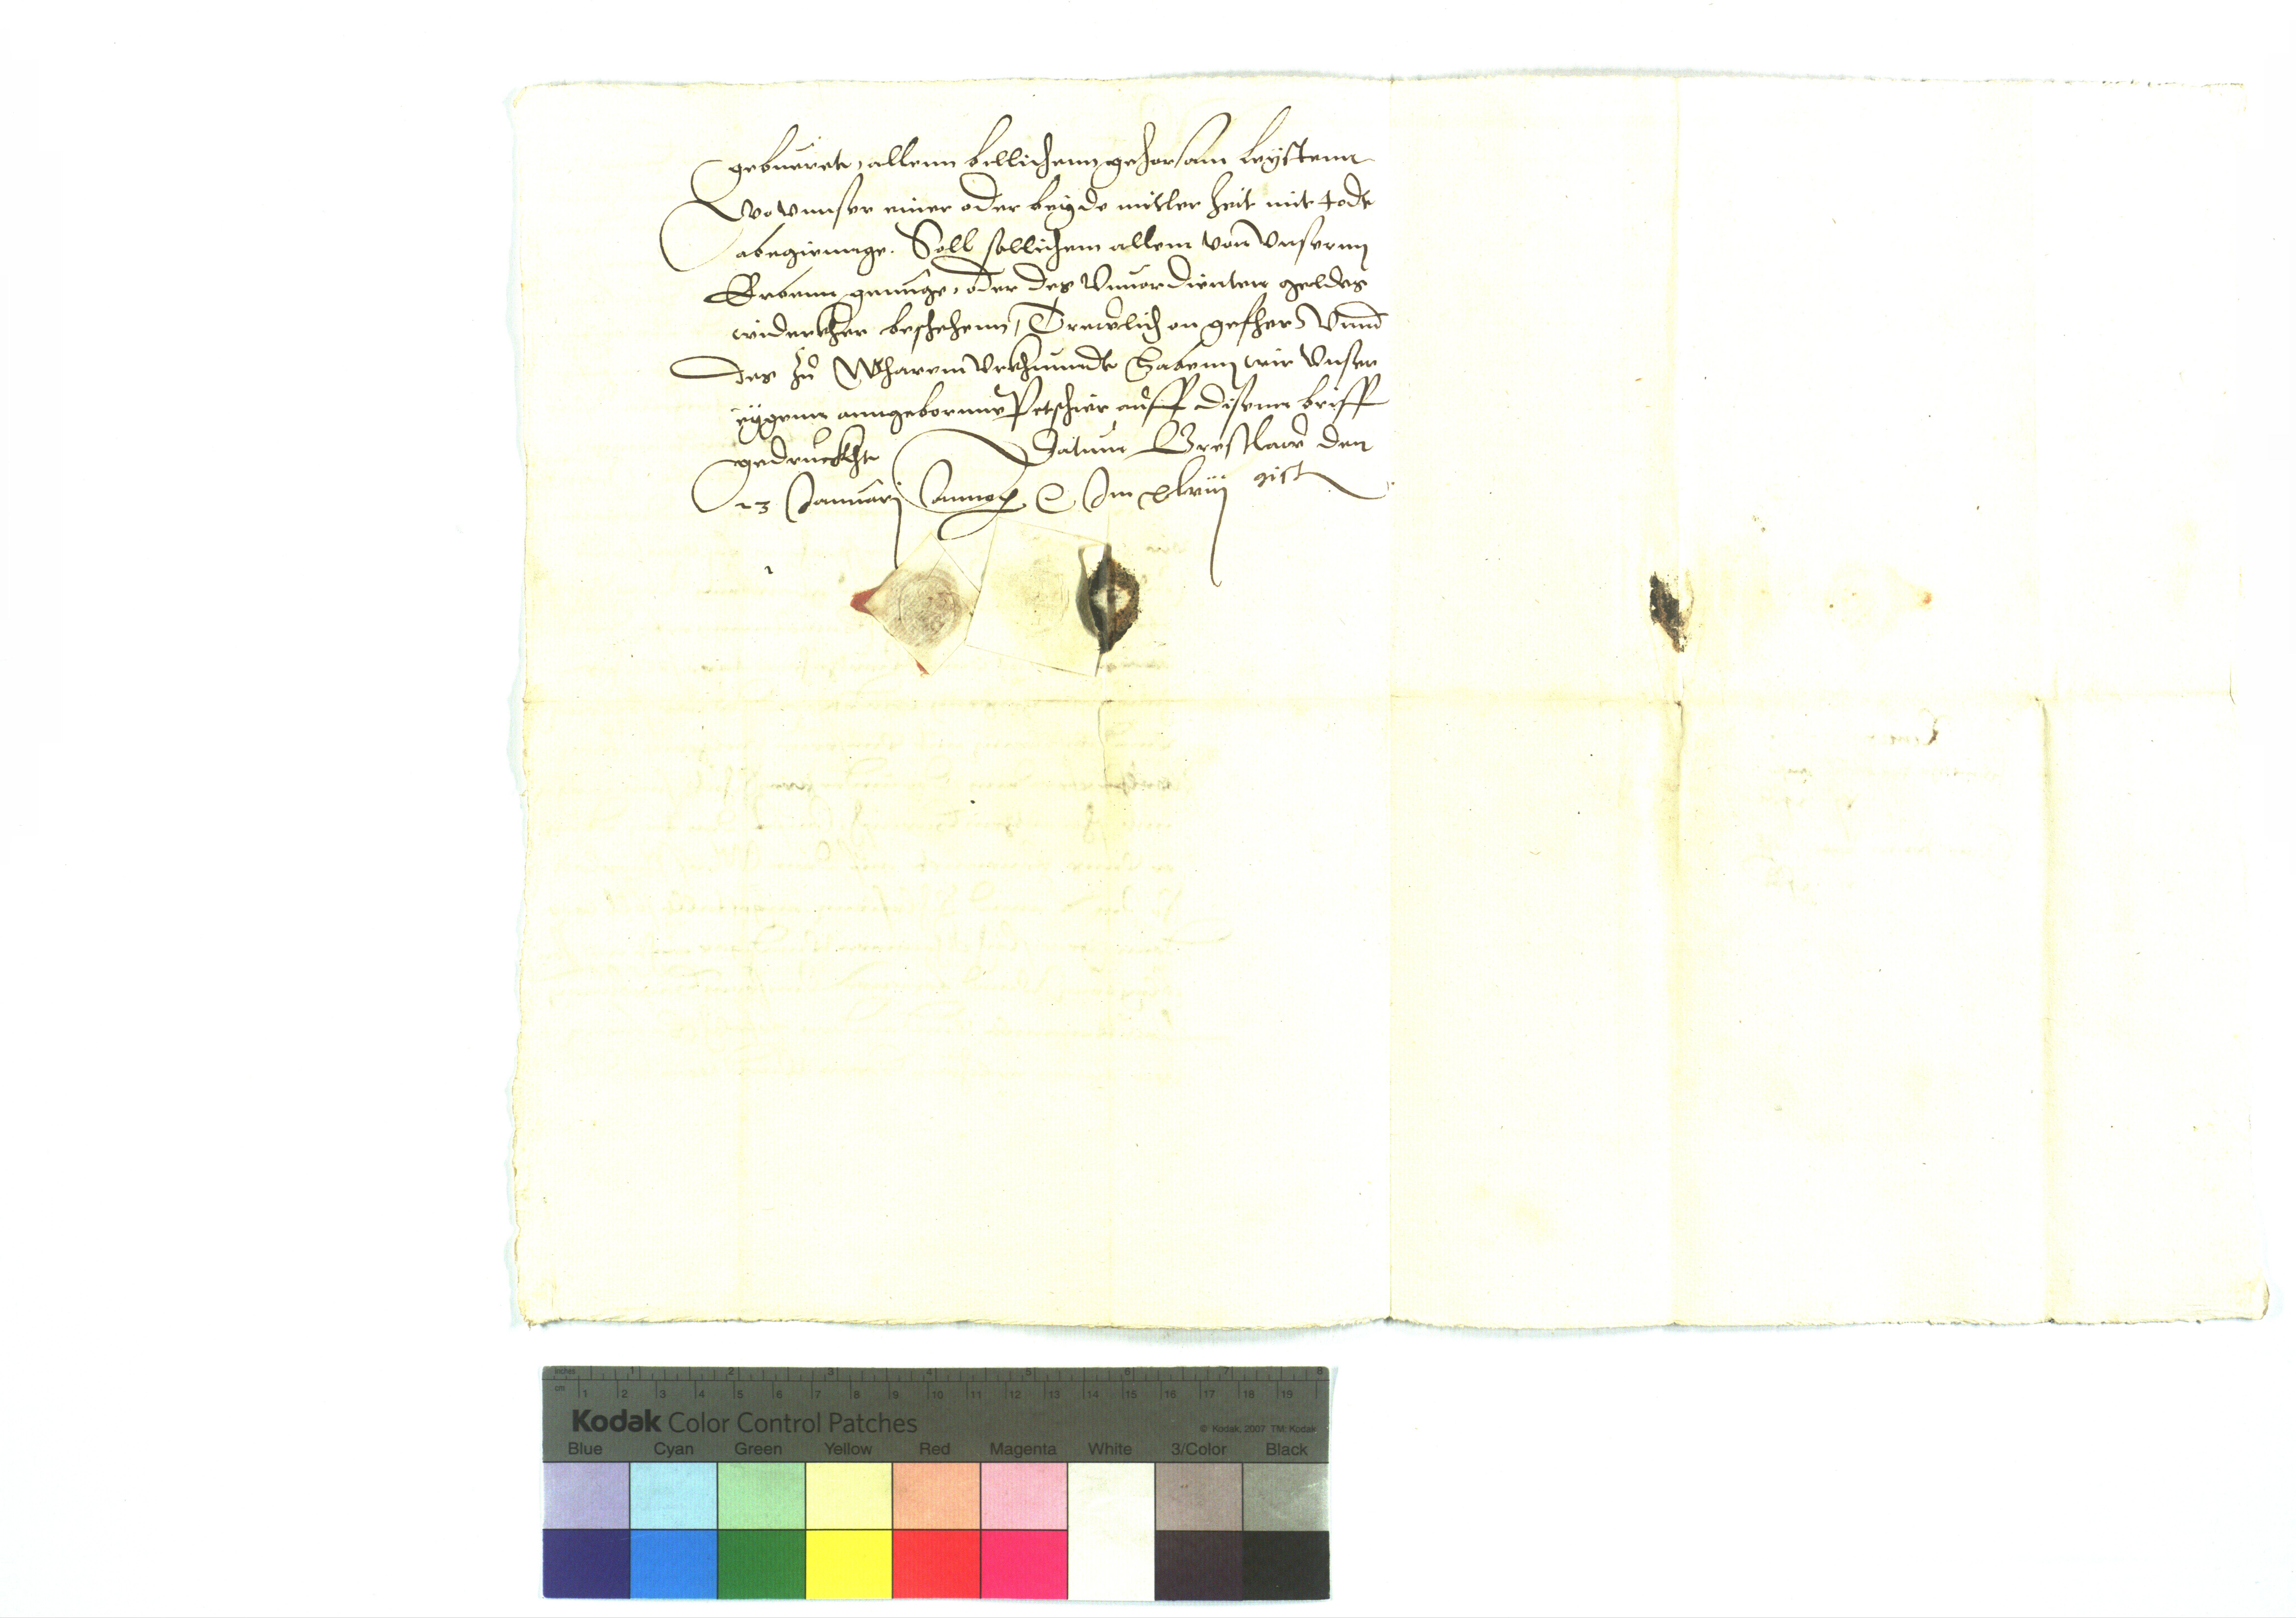 geburete, allenn billichenn gehorsam leystenn
Wo vnnser einer oder beyde mitler zeit mit tode
abeginnge. Soll sollichem allem von Vnsernn
Erbenn genuge, oder des Vnuordienten geldes
widerkher beschehenn, Trewlich on gefher, Vnnd
des zu Wharem Vrkhunndt Habenn wir Vnser
eygenn anngeborne Petschier auff disenn briff
gedruckht Datum Breslaw den
23 Januarj Anno Im xlviij
inches 1 2 3 4 5 6 7 8
cm 1 2 3 4 5 6 7 8 9 10 11 12 13 14 15 16 17 18 19
Kodak Color Control Patches © Kodak, 2007 TM: Kodak
Blue Cyan Green Yellow Red Magenta White 3/Color Black